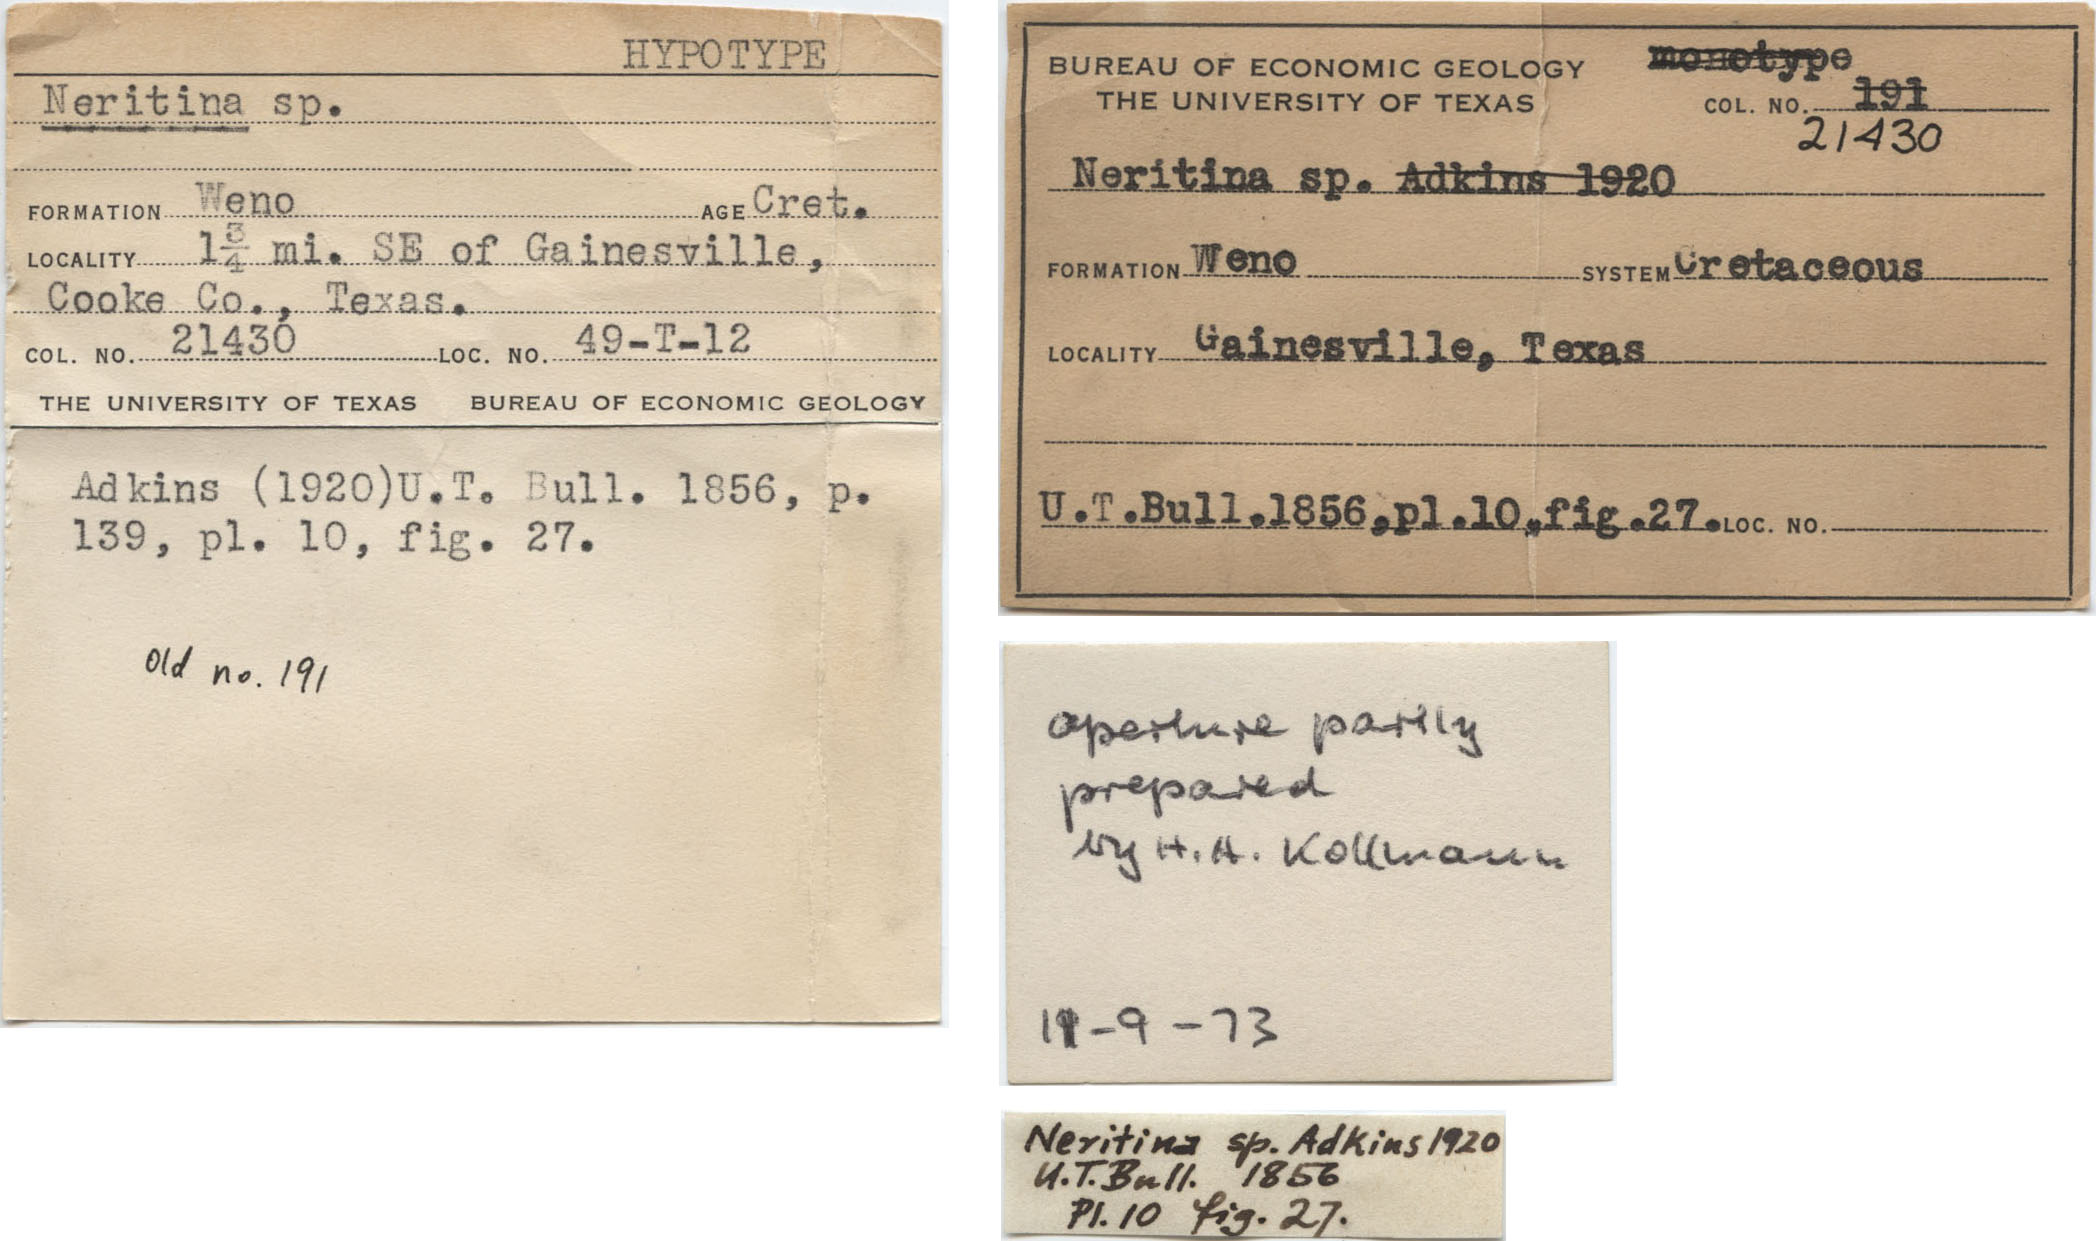 HYPOTYPE
Neritina sp.
FORMATION Weno AGE Cret.
LOCALITY 1 3/4 mi. SE of Gainesville,
Cooke Co., Texas.
COL. NO. 21430 LOC. NO. 49-T-12
THE UNIVERSITY OF TEXAS BUREAU OF ECONOMIC GEOLOGY
Adkins (1920)U.T. Bull. 1856, p.
139, pl. 10, fig. 27.
Old no. 191
monotype
BUREAU OF ECONOMIC GEOLOGY
THE UNIVERSITY OF TEXAS COL. NO. 191
21430
Neritina sp. Adkins 1920
FORMATION Weno SYSTEM Cretaceous
LOCALITY Gainesville, Texas
U.T.Bull.1856,pl.10,fig.27. LOC. NO.
aperture partly
prepared
by H.A. Kollmann
11-9-73
Neritina sp. Adkins 1920
U.T. Bull. 1856
Pl. 10 fig. 27.